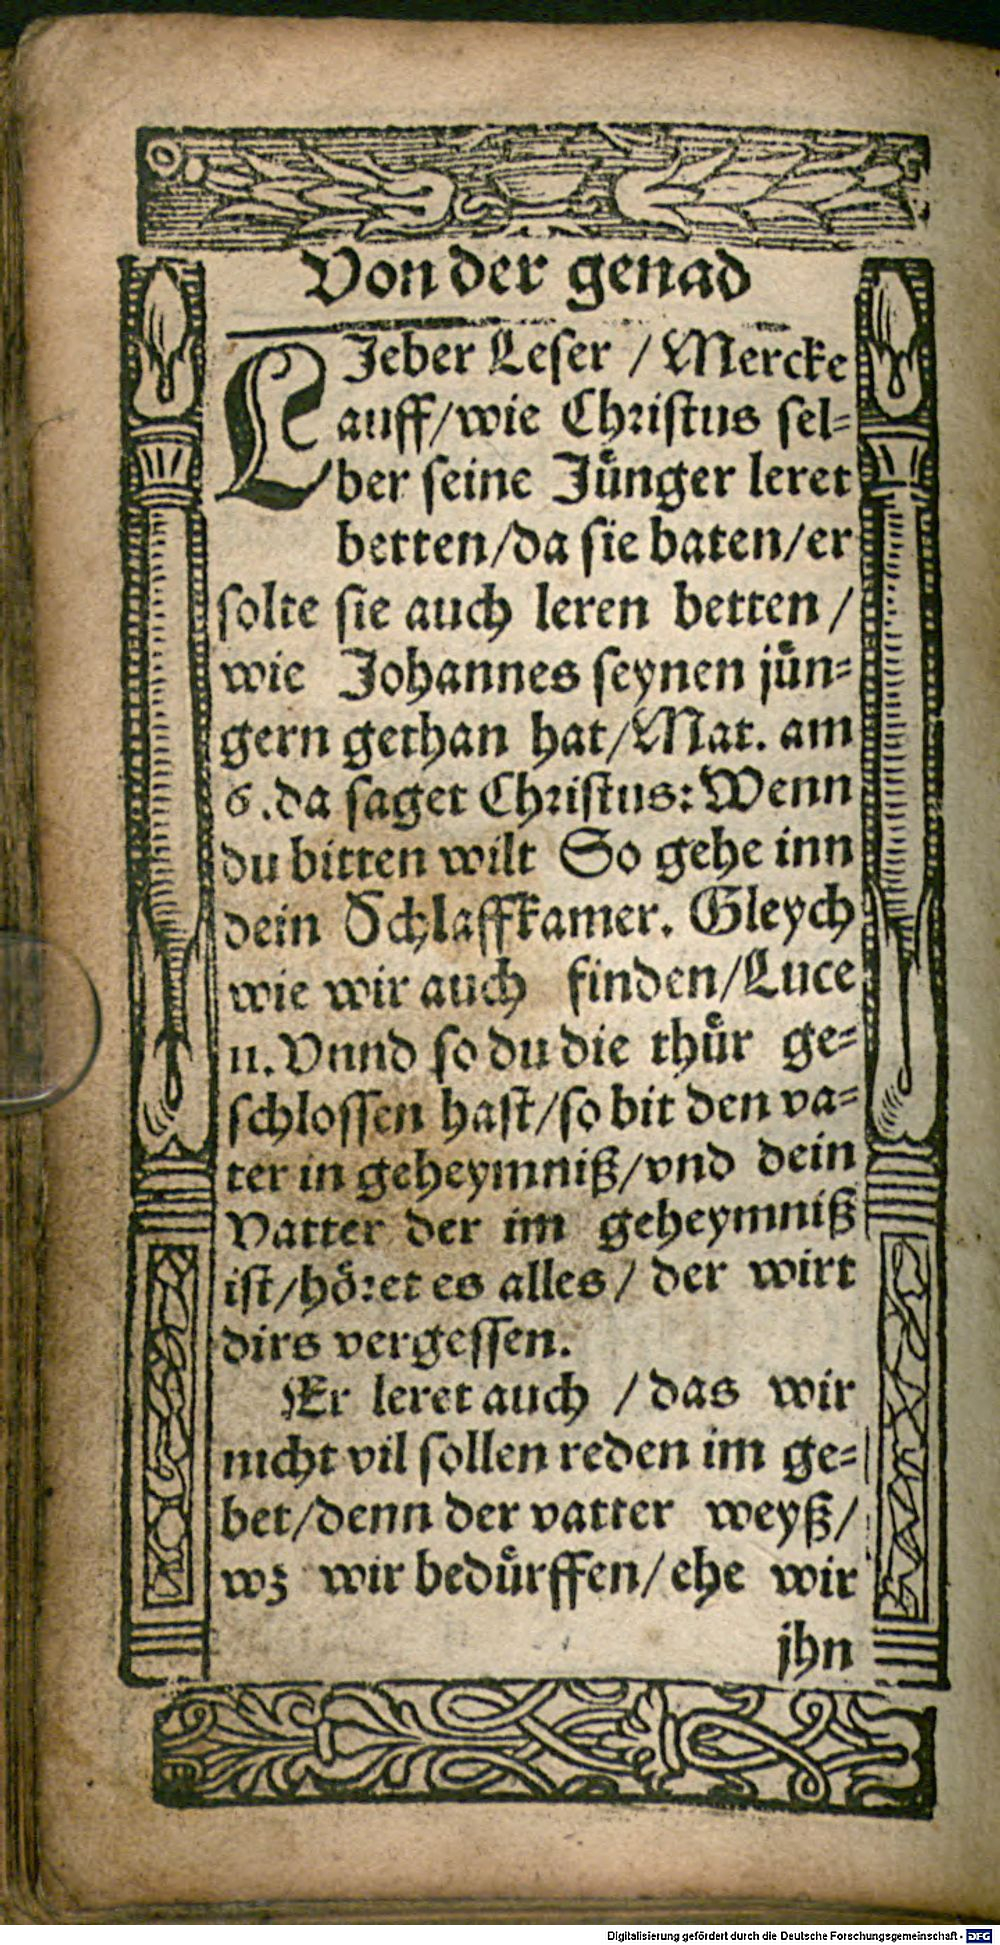 Von der genad
LIeber Leser / Mercke
auff/wie Christus sel-
ber seine Jůnger leret
betten/da sie baten/er
solte sie auch leren betten /
wie Johannes seynen jůn-
gern gethan hat/Mat. am
6.da saget Christus: Wenn
du bitten wilt So gehe inn
dein Schlaffkamer. Gleych
wie wir auch finden/Luce
11.Vnnd so du die thůr ge-
schlossen hast/so bit den va-
ter in geheymniß/vnd dein
Vatter der im geheymniß
ist/hoͤret es alles/ der wirt
dirs vergessen.
Er leret auch /das wir
nicht vil sollen reden im ge-
bet/denn der vatter weyß/
wz wir bedůrffen/ehe wir
jhn
Digitalisierung gefördert durch die Deutsche Forschungsgemeinschaft - DFG